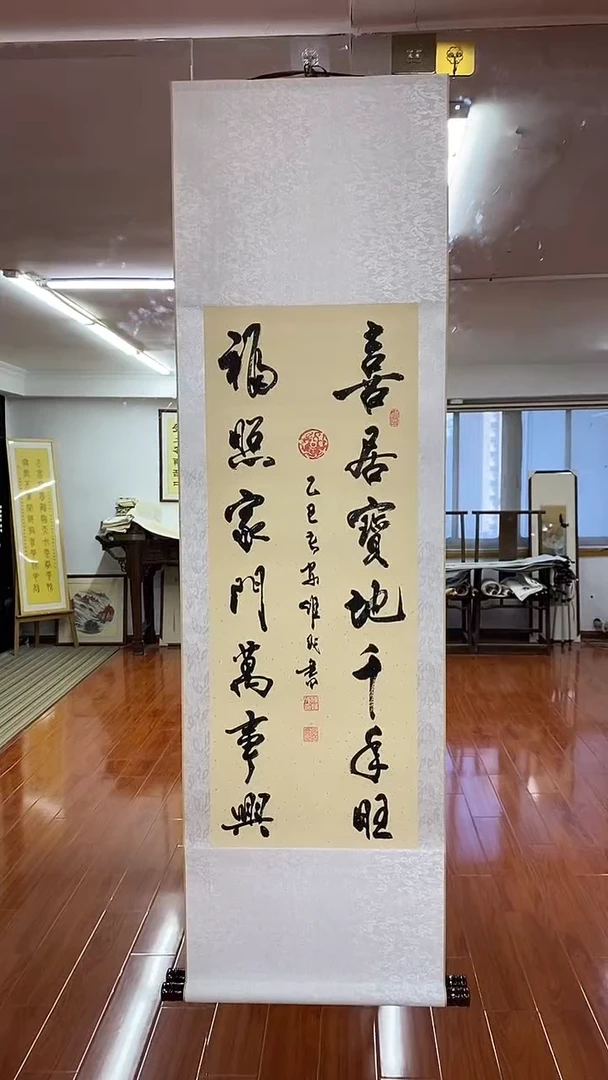 喜居寶地千年旺
乙巳春
書
福照家門萬事興